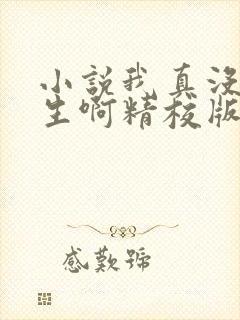 小說我真沒
生啊精校版
感歎號